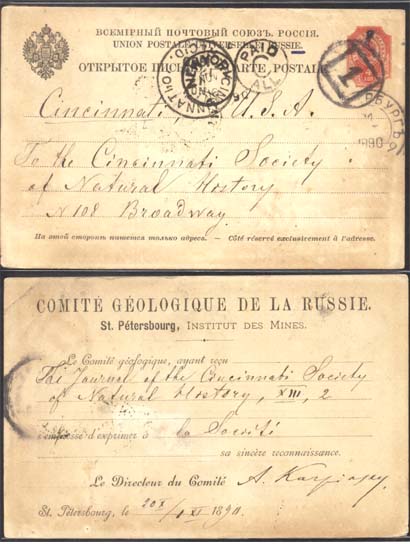 ВСЕМІРНЫЙ ПОЧТОВЫЙ СОЮЗЪ. РОССІЯ.
UNION POSTALE UNIVERSELLE. RUSSIE.
ОТКРЫТОЕ CARTE POSTALE
NEW YORK
PAID
ALL
1
Cincinnati U.S.A.
1890
To the Cincinnati Society
of Natural History
N 108 Broadway
На этой сторонѣ пишется только адресъ. — Côté réservé exclusivement à l'adresse.
COMITÉ GÉOLOGIQUE DE LA RUSSIE.
St. Pétersbourg, INSTITUT DES MINES.
Le Comité géologique, ayant reçu
The Journal of the Cincinnati Society
of Natural History, XIII, 2
s'empresse d'exprimer à la Société
sa sincère reconnaissance.
Le Directeur du Comité A.
St. Pétersbourg, le 20 X/1 XI 1890.